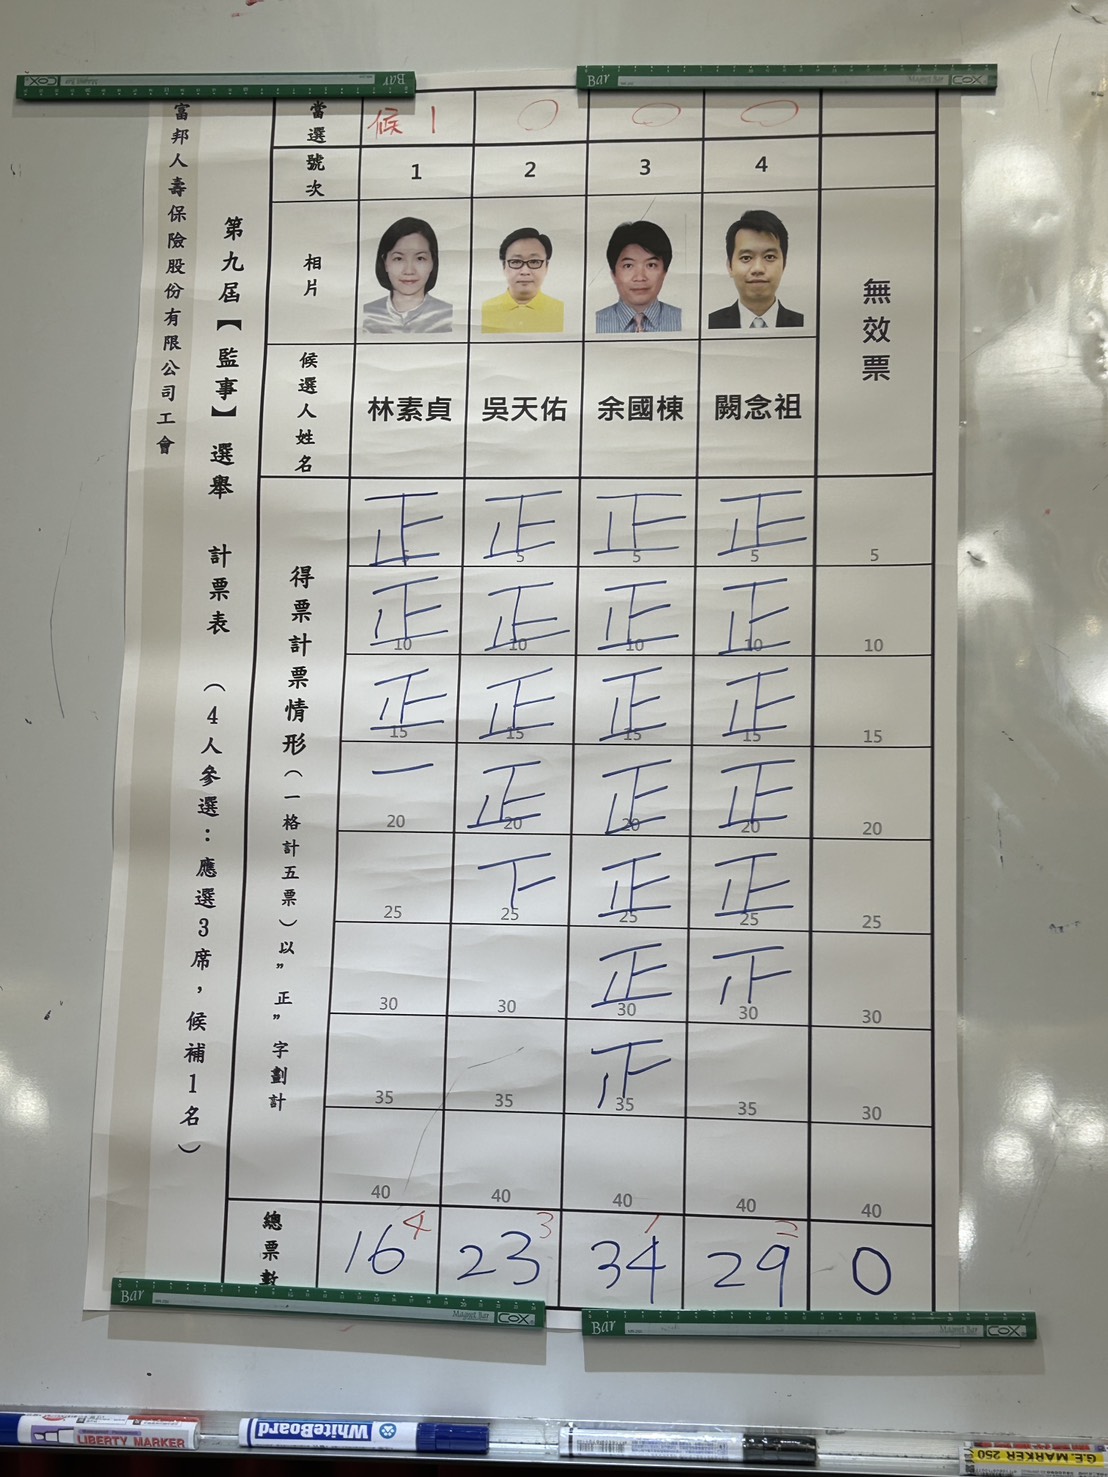 富邦人壽保險股份有限公司工會
第九屆【監事】選舉 計票表 (4人參選：應選3席，候補1名)
當選 候1 ○ ○ ○
號次 1 2 3 4
相片
無效票
候選人姓名 林素貞 吳天佑 余國棟 闕念祖
得票計票情形(一格計五票)以"正"字劃計
正 正 正 正
5 5 5 5 5
正 正 正 正
10 10 10 10 10
正 正 正 正
15 15 15 15 15
一 正 正 正
20 20 20 20 20
下 正 正
25 25 25 25 25
正
30 30 30 30 30
35 35 35 35 30
40 40 40 40 40
總票數 16 4 23 3 34 1 29 2 0
Bar Magnet Bar COX
Bar Magnet Bar COX
Bar Magnet Bar COX
Bar Magnet Bar COX
LIBERTY MARKER
WhiteBoard
G.E. MARKER 250